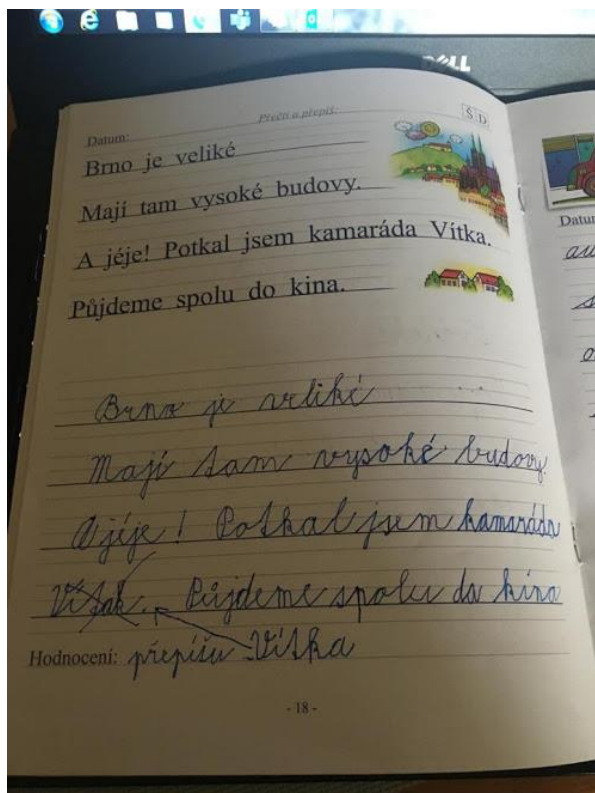 DELL
Přečti a přepiš:
Š D
Datum:
Brno je veliké
Mají tam vysoké budovy.
A jéje! Potkal jsem kamaráda Vítka.
Půjdeme spolu do kina.
Datum
Brno je veliké
Mají tam vysoké budovy.
A jéje! Potkal jsem kamaráda
Víťak. Půjdeme spolu do kina
Hodnocení: přepíšu Vítka
- 18 -